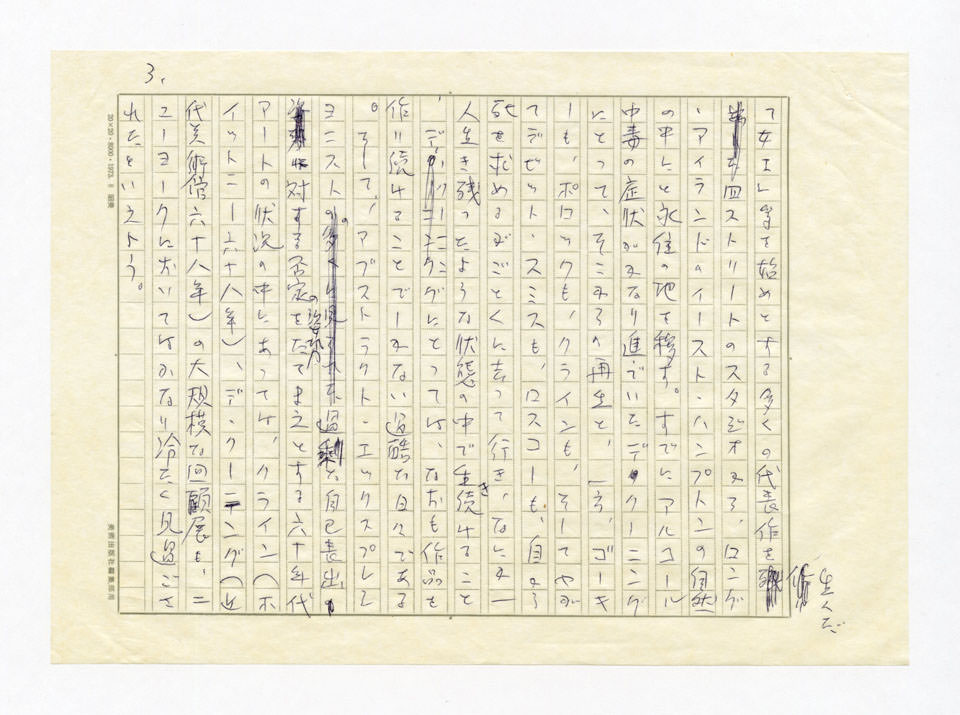 3.
「女I」等を始めとする多くの代表作を生んだ
四ストリートのスタジオから、ロング
・アイランドのイースト・ハンプトンの自然
の中にと永住の地を移す。すでにアルコール
中毒の症状がかなり進でいたデ・クーニング
にとって、そこからの再生と、一方、ゴーキ
ーも、ポロックも、クラインも、そしてやが
てデビット・スミスも、ロスコーも、自から
死を求めるがごとくに去って行き、なにか一
人生き残ったような状態の中で生き続けること
、デ・クーニングにとっては、なおも作品を
作り続けることでしかない過酷な日々である
。そして、アブストラクト・エックスプレシ
ョニストの過剰な自己表出
に対する否定の姿勢をたてまえとする六十年代
アートの状況の中にあっては、クライン(ホ
イットニー六十八年)、デ・クーニング(近
代美術館六十八年)の大規模な回顧展も、ニ
ューヨークにおいてはかなり冷たく見過ごさ
れたといえよう。
20×20・8000・1973.
美術出版社編集部用